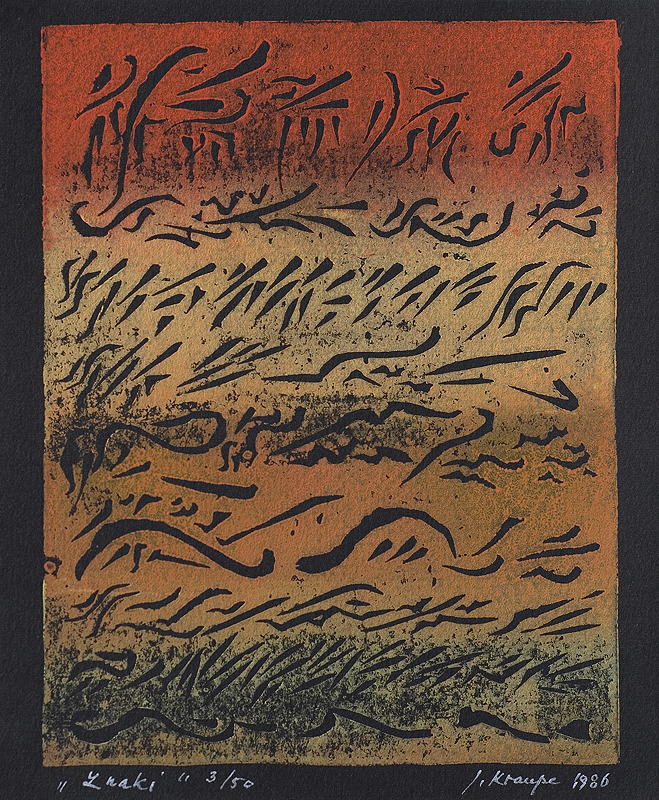 „Znaki“ 3/50 J. Kraupe 1986